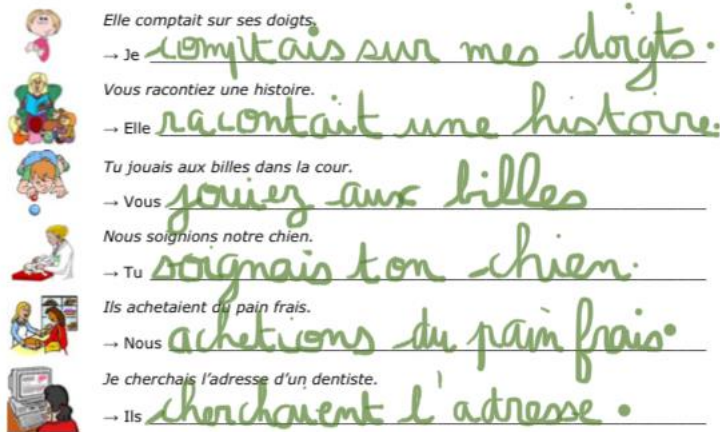 Elle comptait sur ses doigts.
→ Je comptais sur mes doigts.
Vous racontiez une histoire.
→ Elle racontait une histoire.
Tu jouais aux billes dans la cour.
→ Vous jouiez aux billes
Nous soignions notre chien.
→ Tu soignais ton chien.
Ils achetaient du pain frais.
→ Nous achetions du pain frais.
Je cherchais l'adresse d'un dentiste.
→ Ils cherchaient l'adresse.